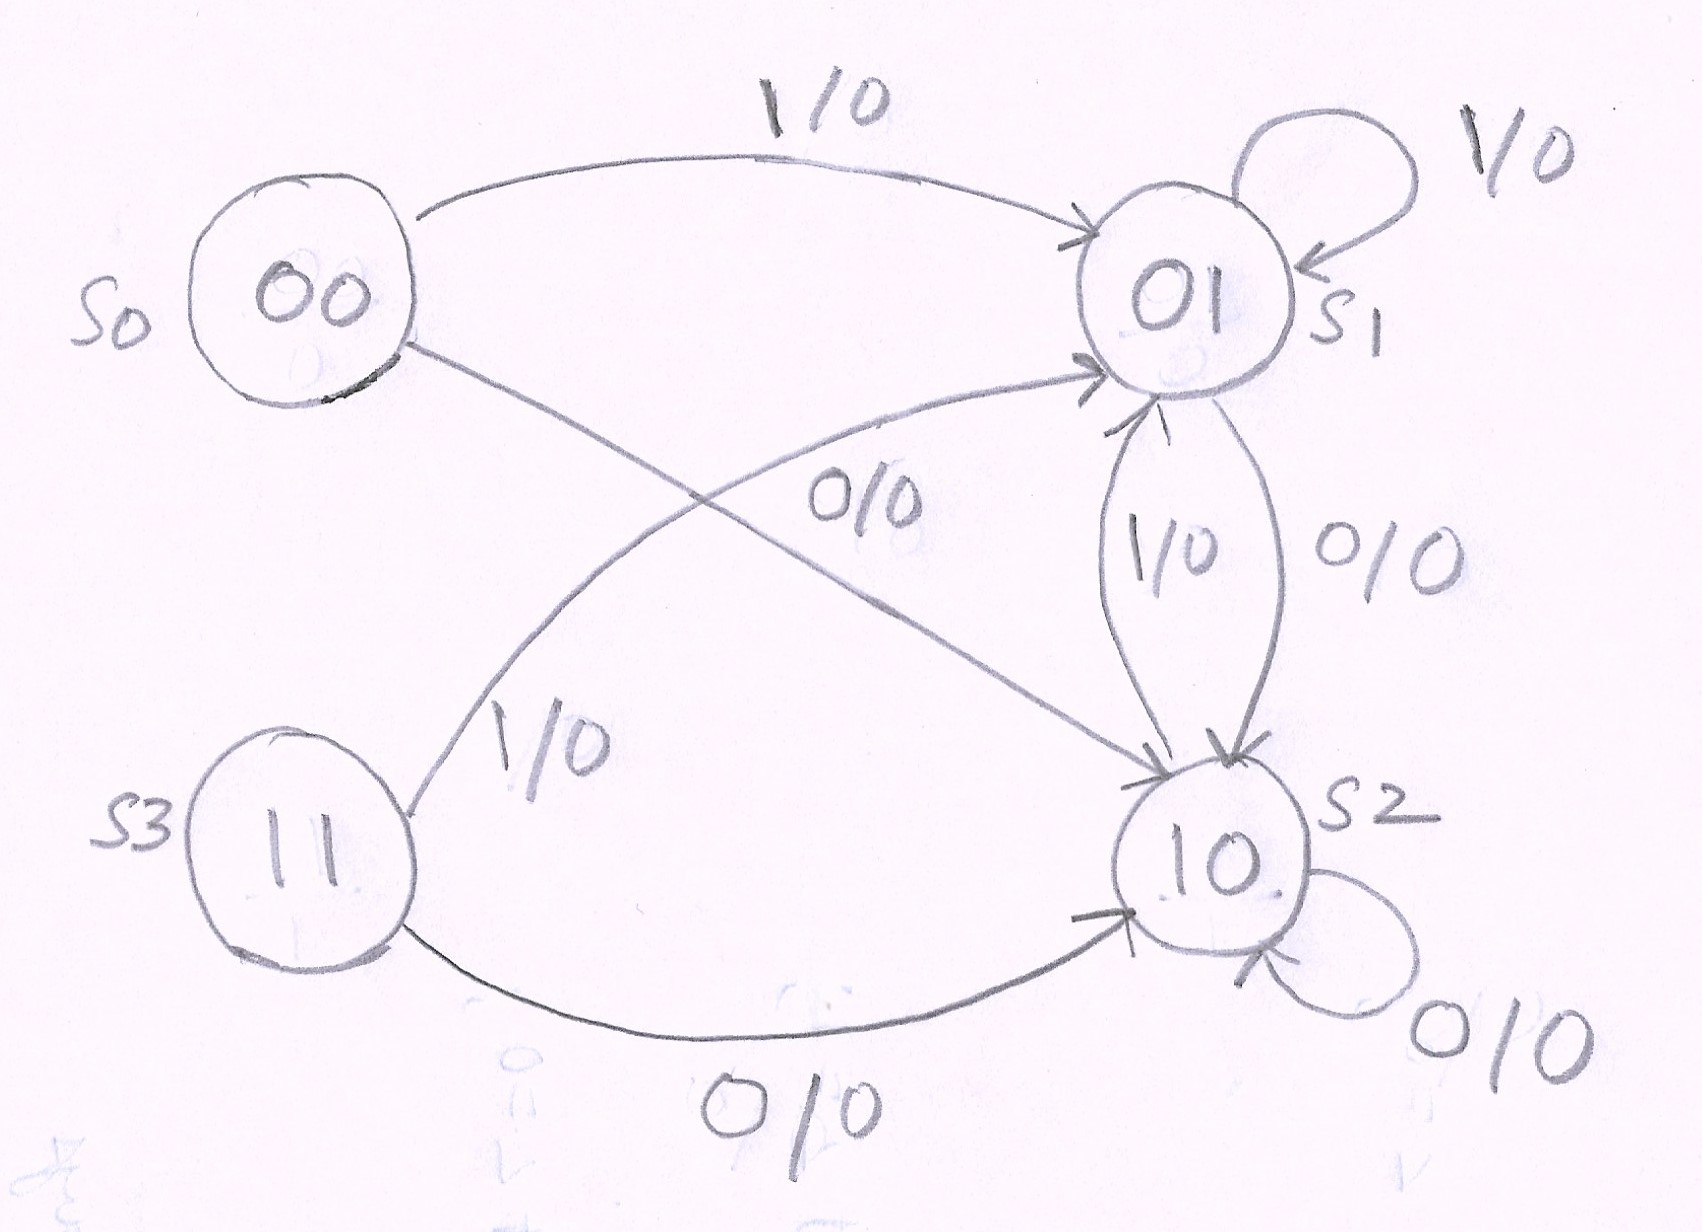 1/0
1/0
S0
00
01
S1
0/0
1/0
0/0
1/0
S3
11
S2
10
0/0
0/0